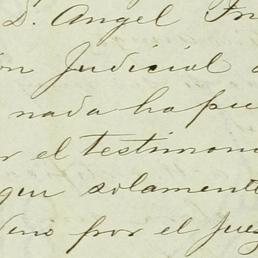 D. Angel
Judicial
nada ha pu
r el testimon
que solamente
por el Juez